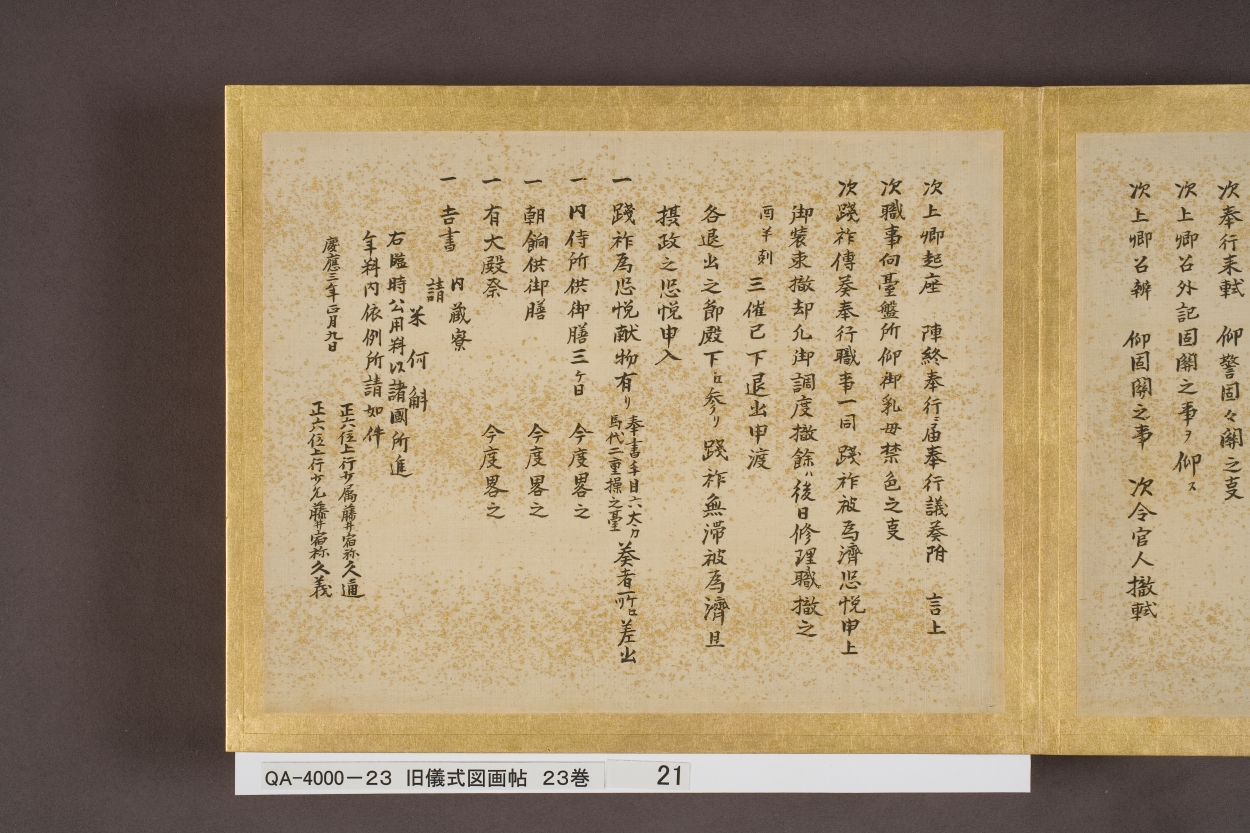 次奉行来軾　仰警固々關之叓
次上卿召外記固關之事ヲ仰ス
次上卿召辨　仰固關之事　次令官人撤軾
次上卿起座　陣終奉行ニ届奉行議奏附　言上
次職事向臺盤所仰御乳母禁色之叓
次踐祚傳奏奉行職事一同　踐祚被為濟恐悦申上
御装束撤却九御調度撤餘ハ後日修理職撤之
酉半刻　三催已下退出申渡
各退出之節殿下江参リ　踐祚無滞被為濟且
摂政之恐悦申入
一　踐祚為恐悦献物有リ
奉書半目六大刀
馬代二重操之臺
葵者一ケ所江差出
一　内侍所供御膳三ケ日　今度畧之
一　朝餉供御膳　今度畧之
一　有大殿祭　今度畧之
一　吉書　内蔵寮
請
米　何　斛
右臨時公用料以諸國所進
年料内依例所請如件
慶應三年正月九日
正六位上行少属藤井宿祢久通
正六位上行少允藤井宿祢久義
QA-4000-23　旧儀式図画帖　23巻　21